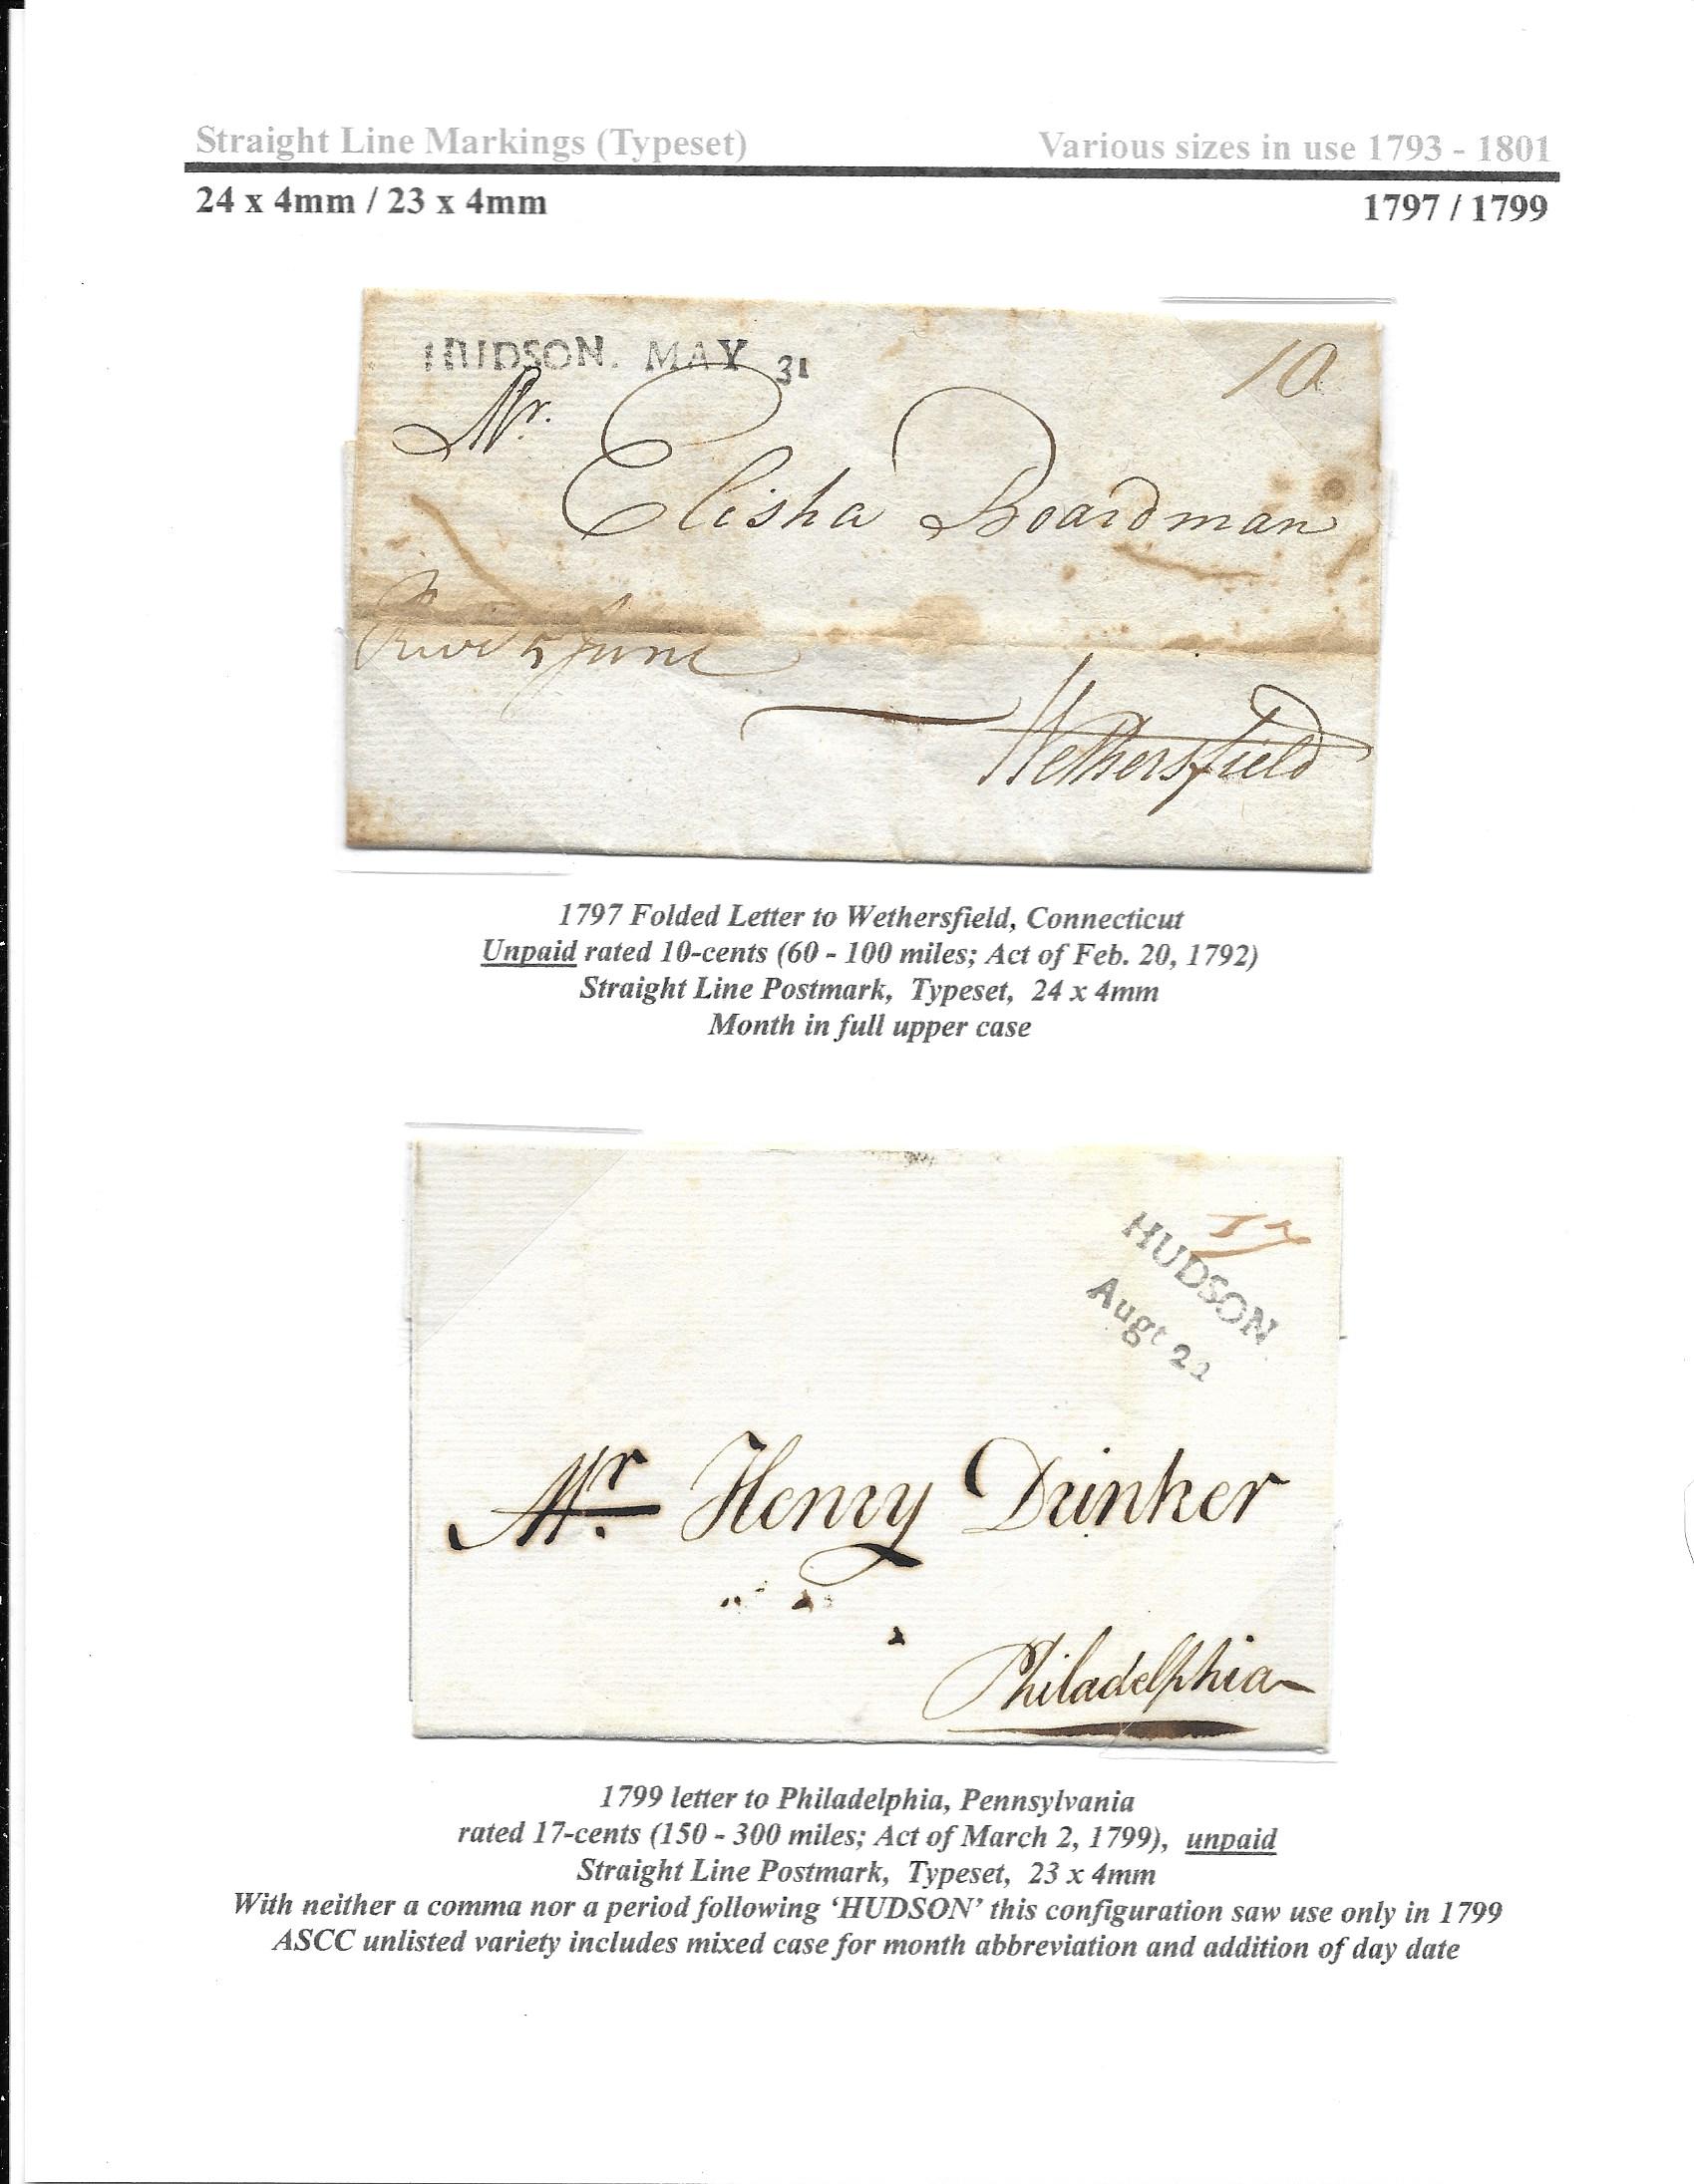 Straight Line Markings (Typeset) Various sizes in use 1793 - 1801
24 x 4mm / 23 x 4mm 1797 / 1799
HUDSON. MAY 31
10
Mr.
Elisha Boardman
5 June
Wethersfield
1797 Folded Letter to Wethersfield, Connecticut
Unpaid rated 10-cents (60 - 100 miles; Act of Feb. 20, 1792)
Straight Line Postmark, Typeset, 24 x 4mm
Month in full upper case
17
HUDSON
Augt 22
Mr. Henry Drinker
Philadelphia
1799 letter to Philadelphia, Pennsylvania
rated 17-cents (150 - 300 miles; Act of March 2, 1799), unpaid
Straight Line Postmark, Typeset, 23 x 4mm
With neither a comma nor a period following ‘HUDSON’ this configuration saw use only in 1799
ASCC unlisted variety includes mixed case for month abbreviation and addition of day date